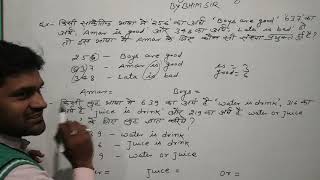 BY BHIM SIR
Ex:- किसी सांकेतिक भाषा में '256' का अर्थ 'Boys are good' '637' का
अर्थ, Aman is good और 348 का अर्थ, Late is bad हो
तो इस भाषा में Aman के लिए कौन सी संख्या प्रयुक्त हुई है?
256 - Boys are good
637 - Aman is good
348 - Late is bad
is = 3
good = 6
Aman = Boys =
किसी कूट भाषा में 639 का अर्थ है 'water is drink', 316 का
अर्थ है 'Juice is drink' और 219 का अर्थ है 'water or Juice'
के लिए कूट
9 - water is drink
6 - Juice is drink
9 - water or Juice
or = Juice =